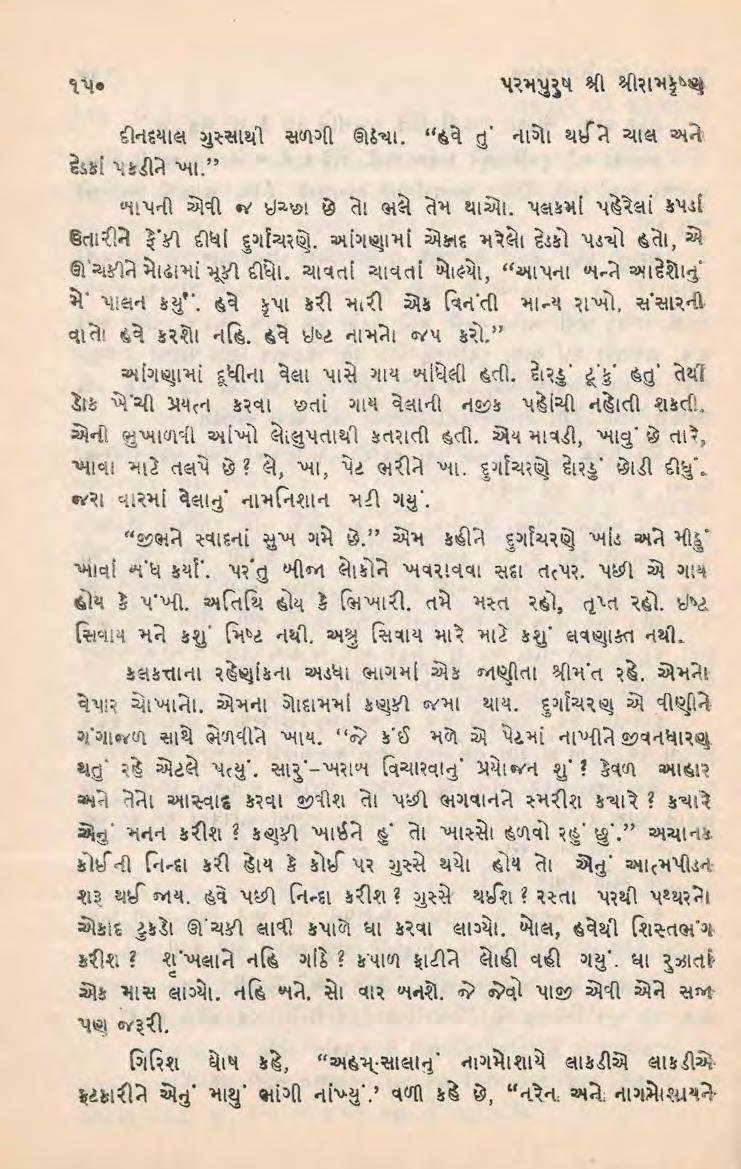 ૧૫૦ પરમપુરુષ શ્રી શ્રીરામકૃષ્ણ
દીનદયાલ ગુસ્સાથી સળગી ઊઠ્યા. “હવે તું નાગો થઈને ચાલ અને
દેડકાં પકડીને ખા.”
બાપની એવી જ ઇચ્છા છે તો ભલે તેમ થાઓ. પલકમાં પહેરેલાં કપડાં
ઉતારીને ફેંકી દીધાં દુર્ગાચરણે. આંગણામાં એકાદ મરેલો દેડકો પડ્યો હતો, એ
ઊંચકીને મોઢામાં મૂકી દીધો. ચાવતાં ચાવતાં બોલ્યો, “આપના બન્ને આદેશોનું
મેં પાલન કર્યું. હવે કૃપા કરી મારી એક વિનંતી માન્ય રાખો, સંસારની
વાતો હવે કરશો નહિ. હવે ઇષ્ટ નામનો જપ કરો.”
આંગણામાં દૂધીના વેલા પાસે ગાય બાંધેલી હતી. દોરડું ટૂંકું હતું તેથી
ડોક ખેંચી પ્રયત્ન કરવા છતાં ગાય વેલાની નજીક પહોંચી નહોતી શકતી.
એની ભુખાળવી આંખો લોલુપતાથી કતરાતી હતી. અય માવડી, ખાવું છે તારે,
ખાવા માટે તલપે છે? લે, ખા, પેટ ભરીને ખા. દુર્ગાચરણે દોરડું છોડી દીધું.
જરા વારમાં વેલાનું નામનિશાન મટી ગયું.
“જીભને સ્વાદનાં સુખ ગમે છે.” એમ કહીને દુર્ગાચરણે ખાંડ અને મીઠું
ખાવાં બંધ કર્યાં. પરંતુ બીજા લોકોને ખવરાવવા સદા તત્પર. પછી એ ગાય
હોય કે પંખી. અતિથિ હોય કે ભિખારી. તમે મસ્ત રહો, તૃપ્ત રહો. ઇષ્ટ
સિવાય મને કશું મિષ્ટ નથી. અશ્રુ સિવાય મારે માટે કશું લવણાક્ત નથી.
કલકત્તાના રહેણાંકના અડધા ભાગમાં એક જાણીતા શ્રીમંત રહે. એમનો
વેપાર ચોખાનો. એમના ગોદામમાં કણકી જમા થાય. દુર્ગાચરણ એ વીણીને
ગંગાજળ સાથે ભેળવીને ખાય. “જે કંઈ મળે એ પેટમાં નાખીને જીવનધારણ
થતું રહે એટલે પત્યું. સારું-ખરાબ વિચારવાનું પ્રયોજન શું? કેવળ આહાર
અને તેનો આસ્વાદ કરવા જીવીશ તો પછી ભગવાનને સ્મરીશ ક્યારે? ક્યારે
એનું મનન કરીશ? કણકી ખાઈને હું તો ખાસ્સો હળવો રહું છું.” અચાનક
કોઈની નિન્દા કરી હોય કે કોઈ પર ગુસ્સે થયો હોય તો એનું આત્મપીડન
શરૂ થઈ જાય. હવે પછી નિન્દા કરીશ? ગુસ્સે થઈશ? રસ્તા પરથી પથ્થરનો
એકાદ ટુકડો ઊંચકી લાવી કપાળે ઘા કરવા લાગ્યો. બોલ, હવેથી શિસ્તભંગ
કરીશ? શૃંખલાને નહિ ગાંઠે? કપાળ ફાટીને લોહી વહી ગયું. ઘા રુઝાતાં
એક માસ લાગ્યો. નહિ બને. સો વાર બનશે. જે જેવો પાજી એવી એને સજા
પણ જરૂરી.
ગિરિશ ઘોષ કહે, “અહમ્-સાલાનું નાગમોશાયે લાકડીએ લાકડીએ
ફટકારીને એનું માથું ભાંગી નાંખ્યું.’ વળી કહે છે, “નરેન અને નાગમોશાયને